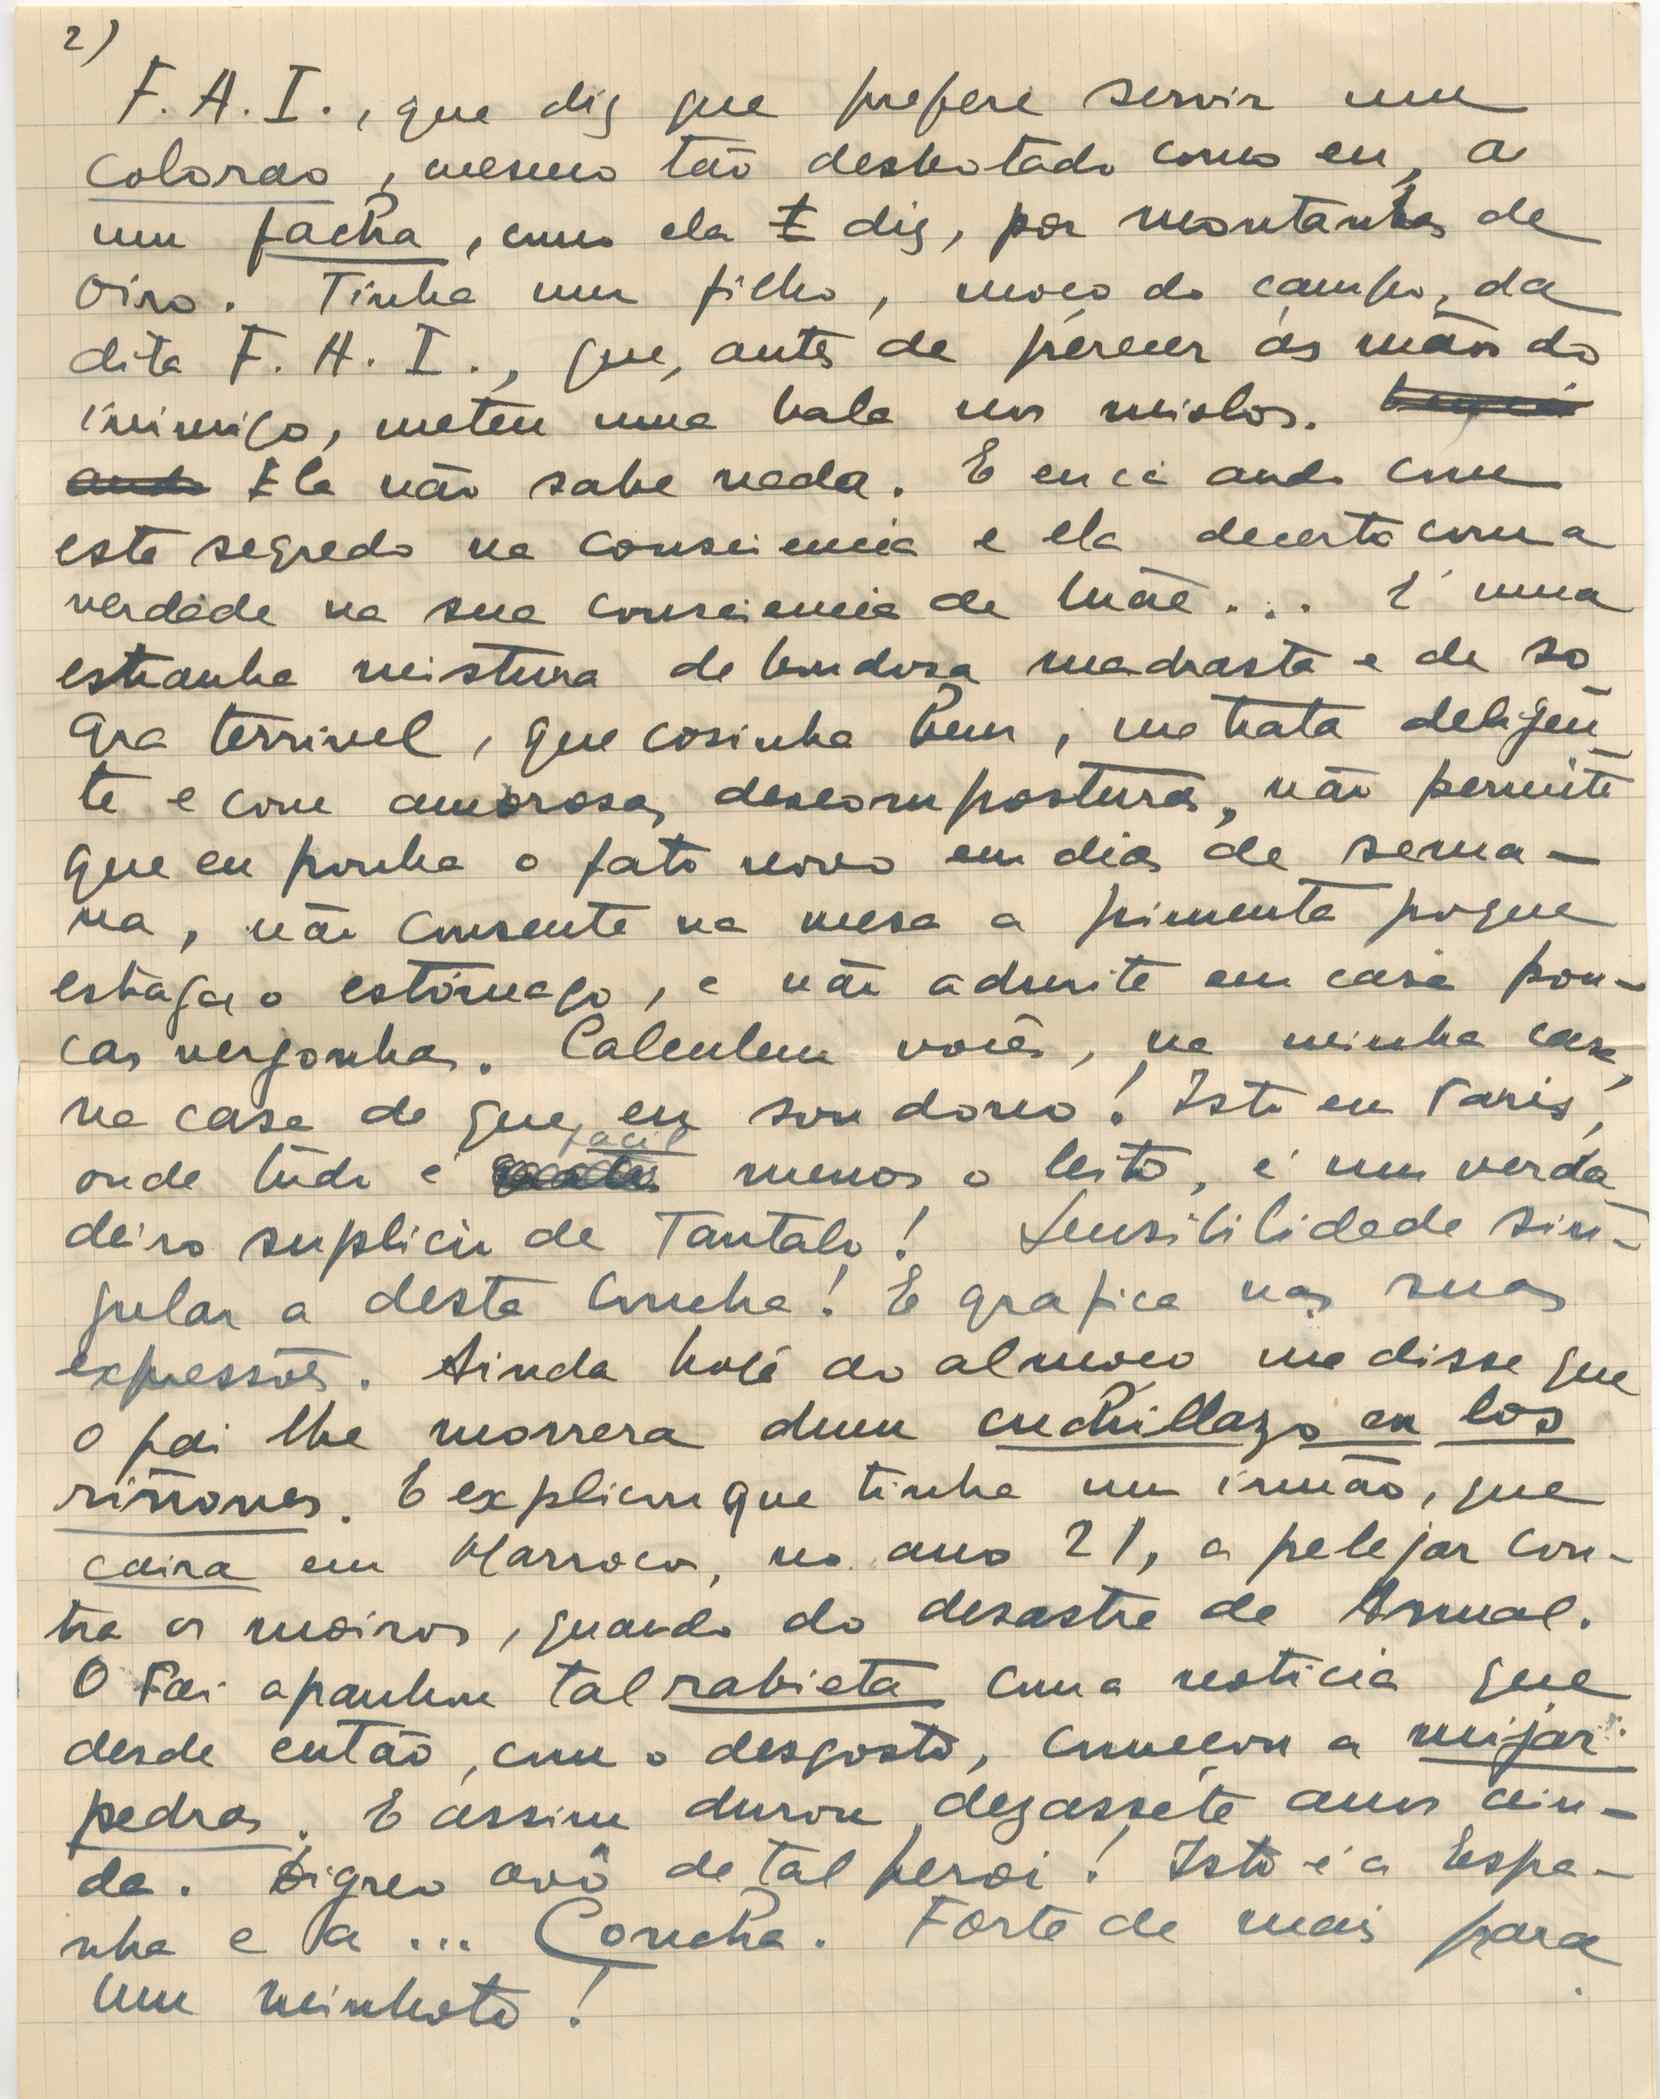 2)
F. A. I., que diz que prefere servir um
colorao, mesmo tão desbotado como eu, a
um facha, como ela diz, por montanhas de
oiro. Tinha um filho, moço do campo, da
dita F. A. I., que, antes de perecer ás mãos do
inimigo, meteu uma bala nos miolos.
Ela não sabe nada. E eu cá ando com
este segredo na consciencia e ela decerto com a
verdade na sua consciencia de mãe... É uma
estranha mistura de bondosa madrasta e de so
gra terrivel, que cosinha bem, me trata deligen
te e com amorosas descomposturas, não permite
que eu ponha o fato novo em dias de sema-
na, não consente na mesa a pimenta poque
estraga o estômago, e não admite em casa pou-
cas vergonhas. Calculem vocês, na minha casa,
na casa de que eu sou dono! Isto em Paris,
onde tudo é facil menos o leito, é um verda
deiro suplicio de Tantalo! Sensibilidade sin-
gular a desta Concha! E grafica nas suas
expressões. Ainda hoje ao almoço me disse que
o pai lhe morrera dum cuchillazo en los
riñones. E explicou que tinha um irmão, que
caira em Marrocos, no ano 21, a pelejar con-
tra os moiros, quando do desastre de Annual.
O Pai apanhou tal rabieta com a noticia que
desde então, com o desgosto, começou a mijar
pedras. E assim durou dezassete anos ain-
da. Digno avô de tal heroi! Isto é a Espa-
nha e a ... Concha. Forte de mais para
um minhoto!